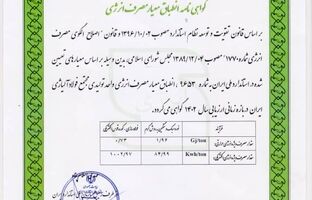 گواهی نامه انطباق معیار مصرف انرژی
بر اساس قانون تقویت و توسعه نظام استاندارد مصوب ۱۳۹۶/۱۰/۰۲ و قانون "اصلاح الگوی مصرف
انرژی شماره ۱۷۷۰" مصوب ۱۳۸۹/۱۲/۰۴ مجلس شورای اسلامی، بدین وسیله بر اساس معیارهای تعیین
شده در استاندارد ملی ایران به شماره ۹۶۵۳، انطباق معیار مصرف انرژی واحد تولیدی مجتمع فولاد آلیاژی
ایران در بازه زمانی ارزیابی سال ۱۴۰۲ گواهی می گردد.
فرآیند
Gj/ton ۱/۹۶ ۰/۷۳
Kwh/ton ۸۴/۹۹ ۱۰۰۲/۹۷